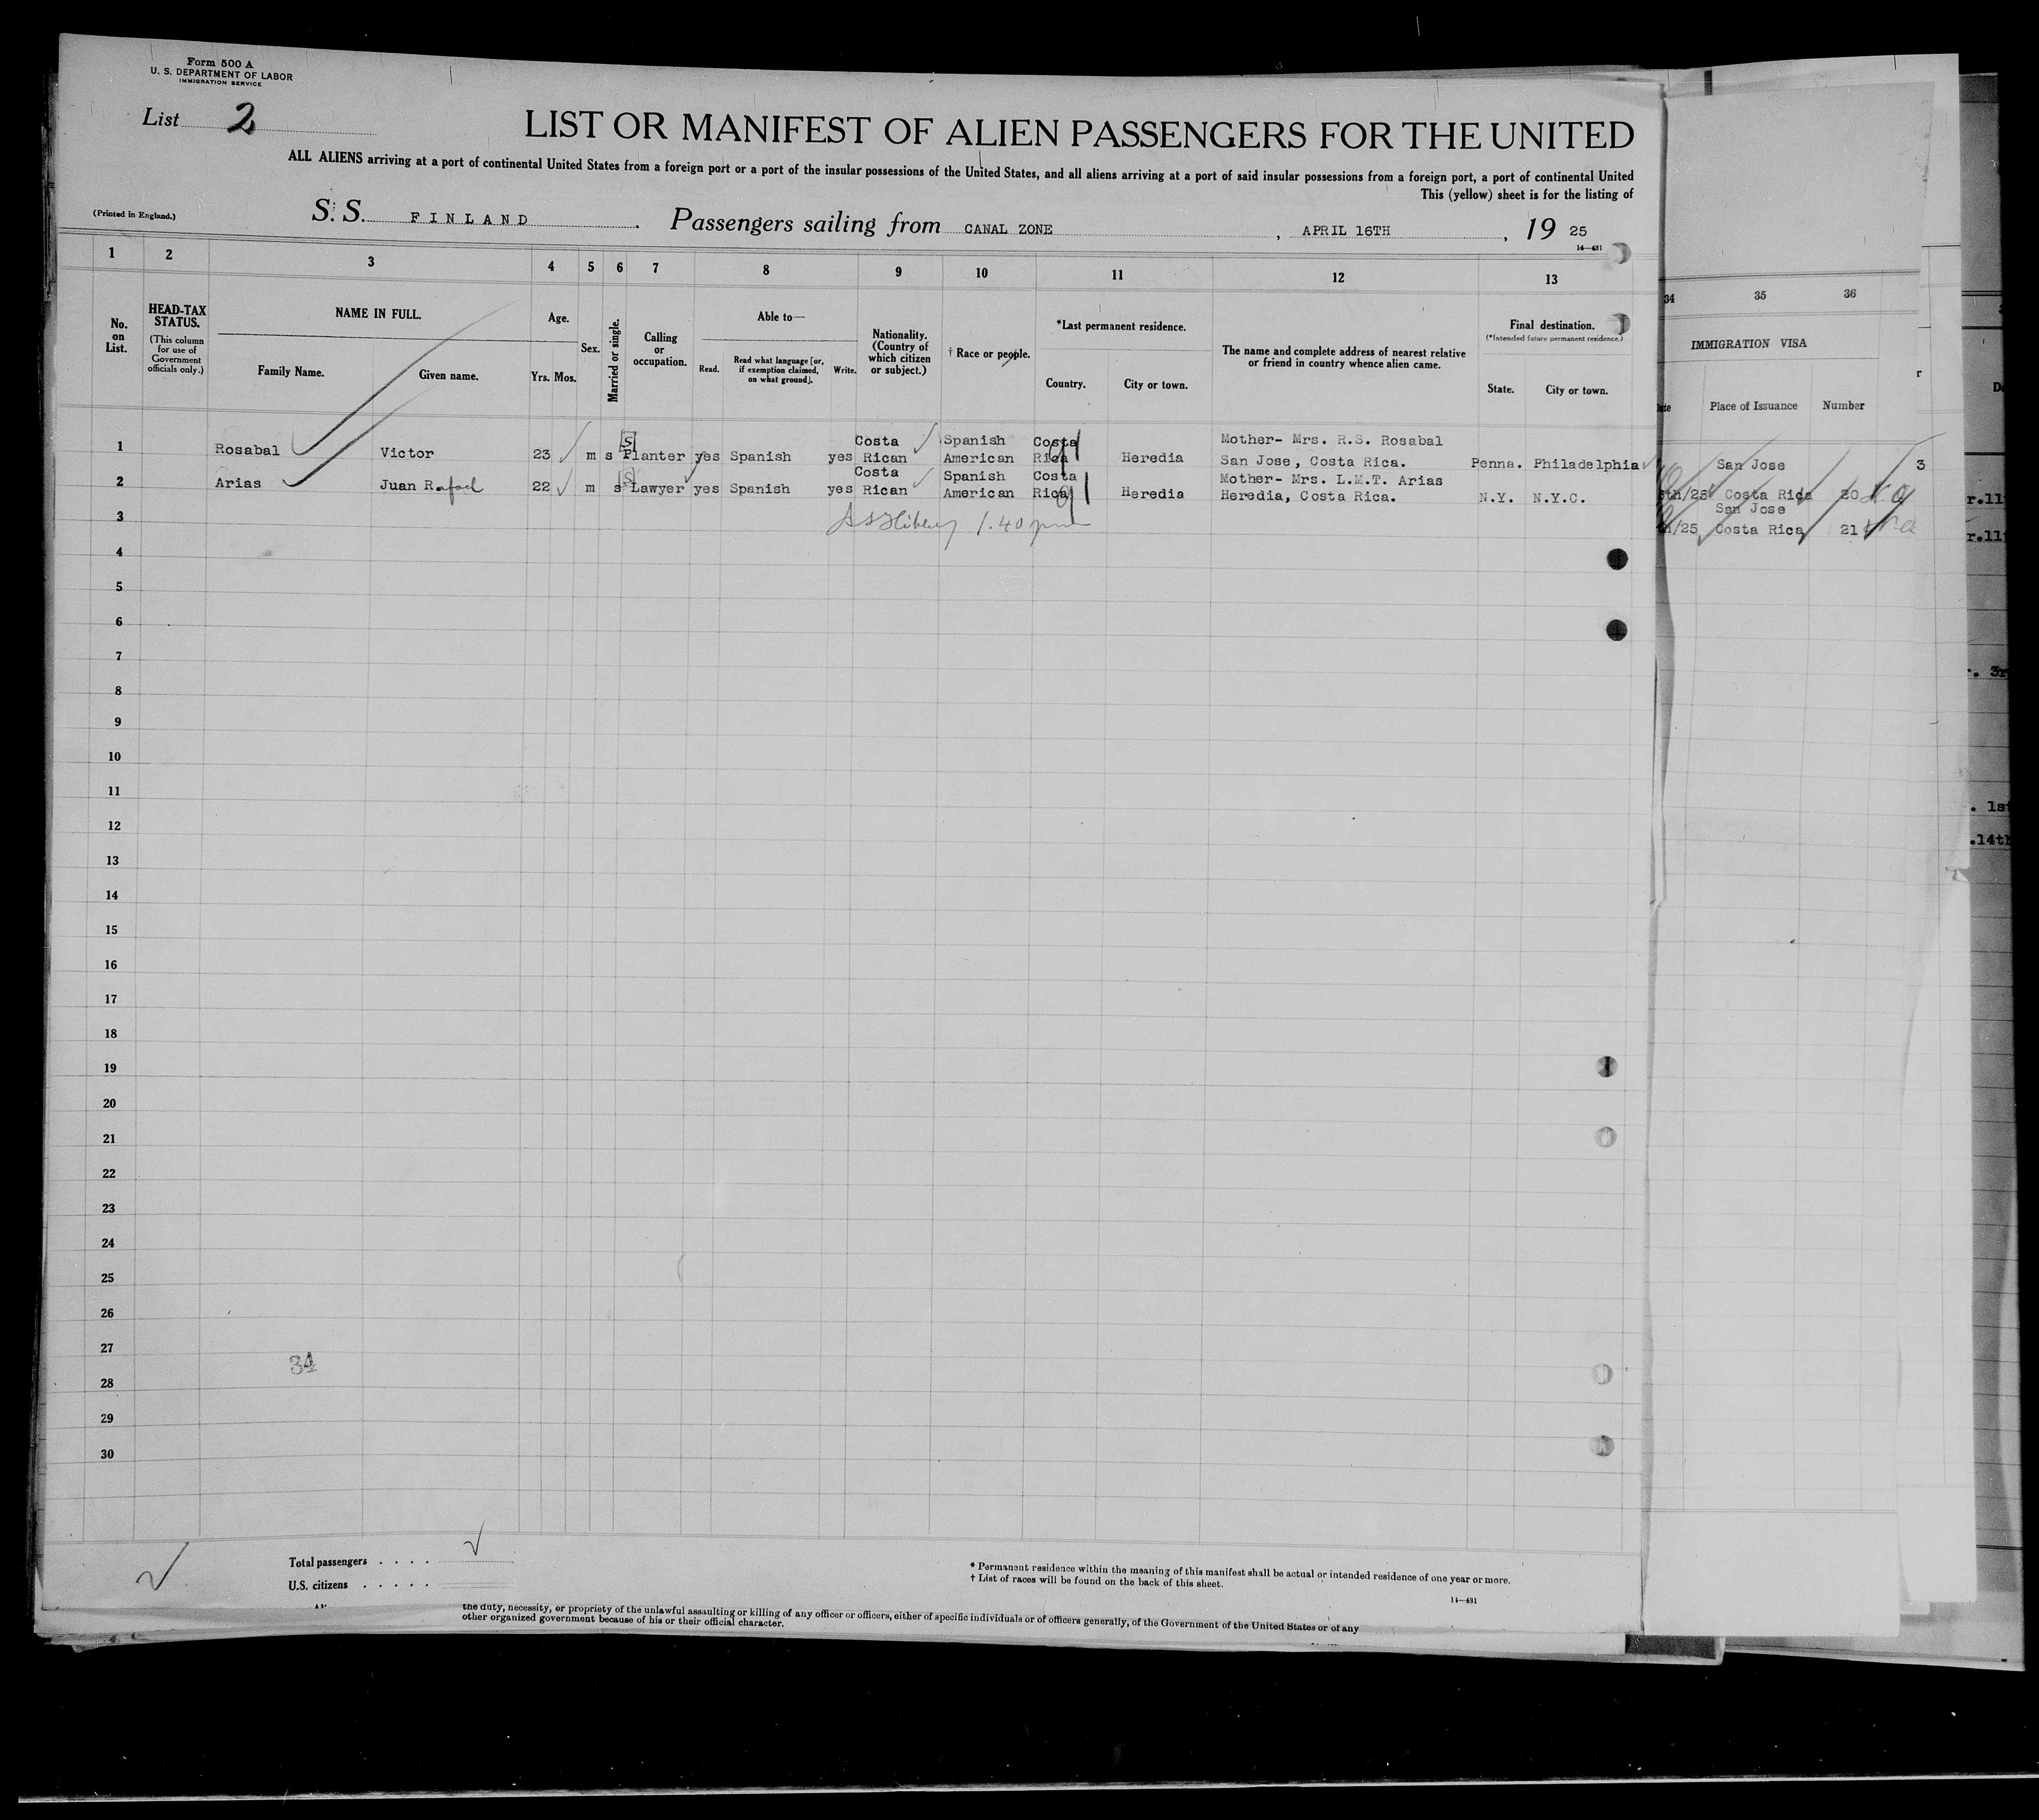 Form 500 A
U. S. DEPARTMENT OF LABOR
IMMIGRATION SERVICE
List 2
LIST OR MANIFEST OF ALIEN PASSENGERS FOR THE UNITED
ALL ALIENS arriving at a port of continental United States from a foreign port or a port of the insular possessions of the United States, and all aliens arriving at a port of said insular possessions from a foreign port, a port of continental United
This (yellow) sheet is for the listing of
(Printed in England.)
S. S. FINLAND. Passengers sailing from CANAL ZONE, APRIL 16TH, 19 25
14—431
1 2 3 4 5 6 7 8 9 10 11 12 13 34 35 36
No. on List.
HEAD-TAX STATUS.
(This column for use of Government officials only.)
NAME IN FULL.
Family Name. Given name.
Age.
Yrs. Mos.
Sex.
Married or single.
Calling or occupation.
Able to—
Read. Read what language [or, if exemption claimed, on what ground]. Write.
Nationality. (Country of which citizen or subject.)
† Race or people.
*Last permanent residence.
Country. City or town.
The name and complete address of nearest relative or friend in country whence alien came.
Final destination.
(*Intended future permanent residence.)
State. City or town.
IMMIGRATION VISA
Place of Issuance Number
1 Rosabal Victor 23 m s S Planter yes Spanish yes Costa Rican Spanish American Costa Rica Heredia Mother- Mrs. R.S. Rosabal San Jose, Costa Rica. Penna. Philadelphia
2 Arias Juan Rafael 22 m s S Lawyer yes Spanish yes Costa Rican Spanish American Costa Rica Heredia Mother- Mrs. L.M.T. Arias Heredia, Costa Rica. N.Y. N.Y.C.
San Jose
th/25 Costa Rica 20
San Jose
/25 Costa Rica 21
3
r.11
r.11
3 1.40 pm
4
5
6
7
8
9
10
11
12
13
14
15
16
17
18
19
20
21
22
23
24
25
26
27
34
28
29
30
. 3r
. 1st
.14th
Total passengers . . . .
U.S. citizens . . . . .
* Permanent residence within the meaning of this manifest shall be actual or intended residence of one year or more.
† List of races will be found on the back of this sheet.
14—431
the duty, necessity, or propriety of the unlawful assaulting or killing of any officer or officers, either of specific individuals or of officers generally, of the Government of the United States or of any
other organized government because of his or their official character.